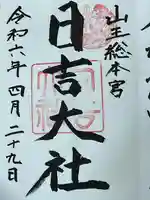 山王総本宮
日吉大社
令和六年四月二十九日